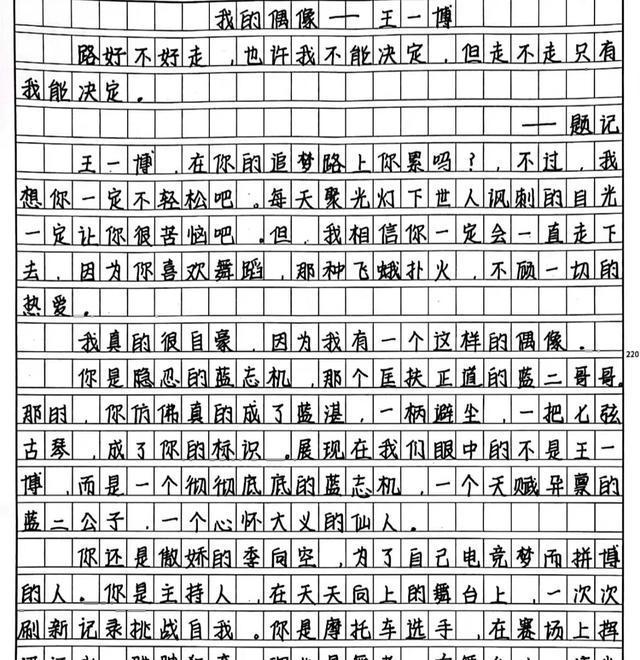 我的偶像——王一博
路好不好走，也许我不能决定，但走不走只有
我能决定。
——题记
王一博，在你的追梦路上你累吗？，不过，我
想你一定不轻松吧。每天聚光灯下世人讽刺的目光
一定让你很苦恼吧。但，我相信你一定会一直走下
去，因为你喜欢舞蹈，那种飞蛾扑火，不顾一切的
热爱。
我真的很自豪，因为我有一个这样的偶像。
220
你是隐忍的蓝忘机，那个匡扶正道的蓝二哥哥。
那时，你仿佛真的成了蓝湛，一柄避尘，一把七弦
古琴，成了你的标识。展现在我们眼中的不是王一
博，而是一个彻彻底底的蓝忘机，一个天赋异禀的
蓝二公子，一个心怀大义的仙人。
你还是傲娇的季向空，为了自己电竞梦而拼博
的人。你是主持人，在天天向上的舞台上，一次次
刷新记录挑战自我。你是摩托车选手，在赛场上挥